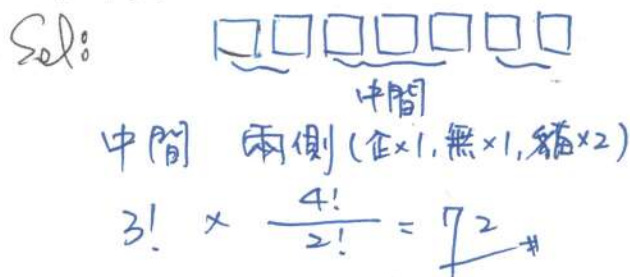 Sol:
中間
中間 兩側(企×1,無×1,貓×2)
3! × 4!/2! = 72 #